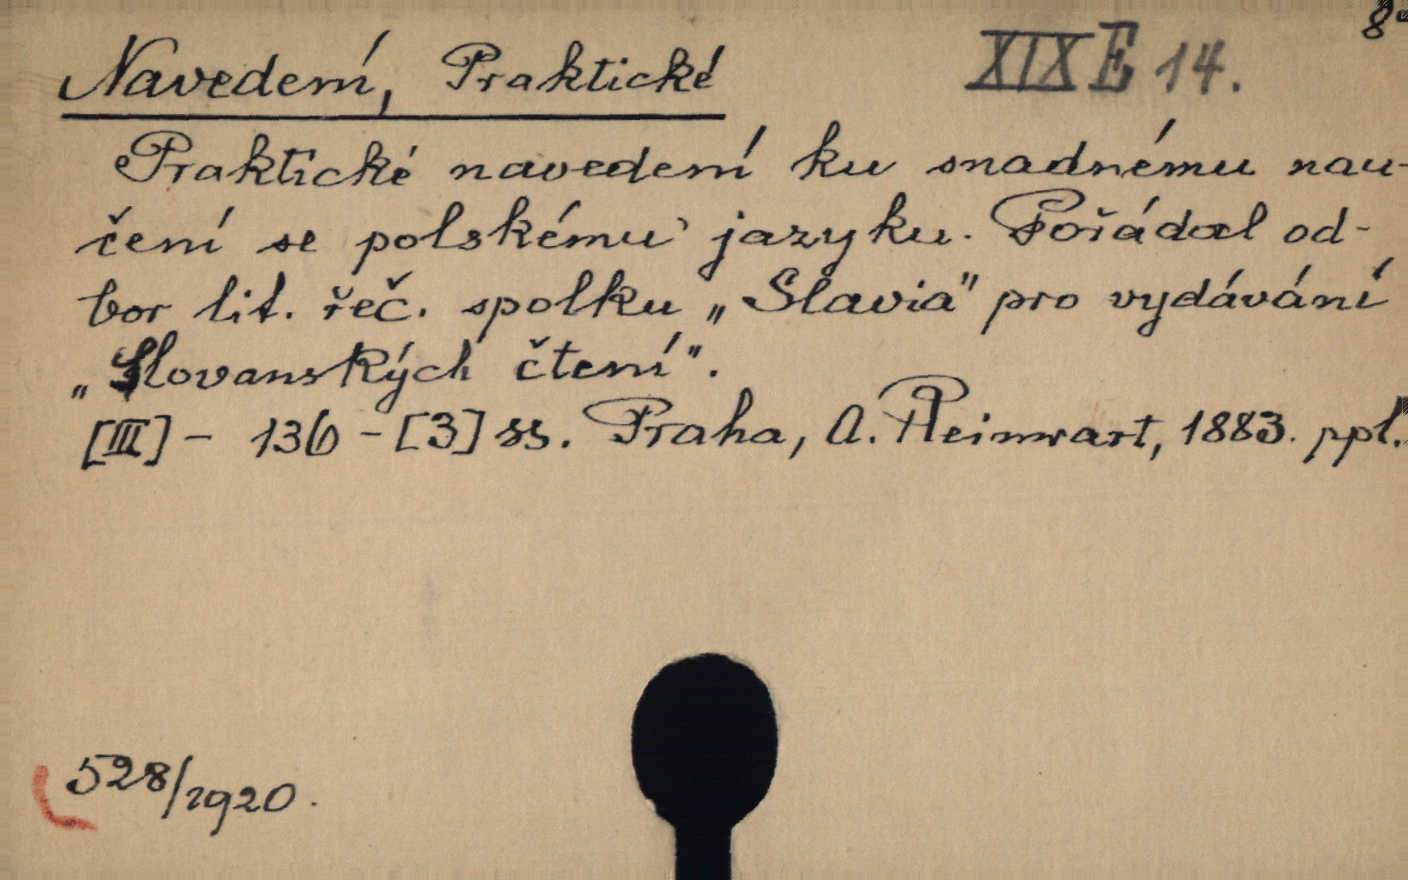 8°
Navedení, Praktické XIX E 14.
Praktické navedení ku snadnému nau-
čení se polskému jazyku. Pořádal od-
bor lit. řeč. spolku „Slavia" pro vydávání
„Slovanských čtení".
[III] - 136 - [3] ss. Praha, A. Reinwart, 1883. ppl.
528/1920.